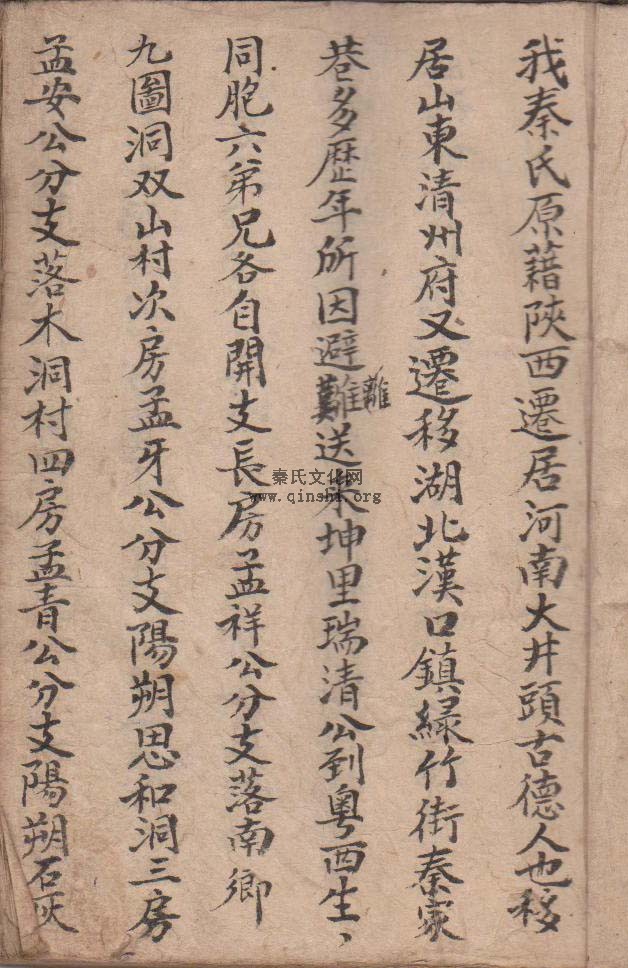 我秦氏原藉陝西遷居河南大井頭古德人也移
居山東清州府又遷移湖北漢口鎮緑竹街秦家
巷多歷年所因避難難送來坤里瑞清公到粤西生、
同胞六弟兄各自開支長房孟祥公分支落南鄉
九圖洞双山村次房孟牙公分支陽朔思和洞三房
孟安公分支落木洞村四房孟青公分支陽朔石灰
秦氏文化网
www.qinshi.org